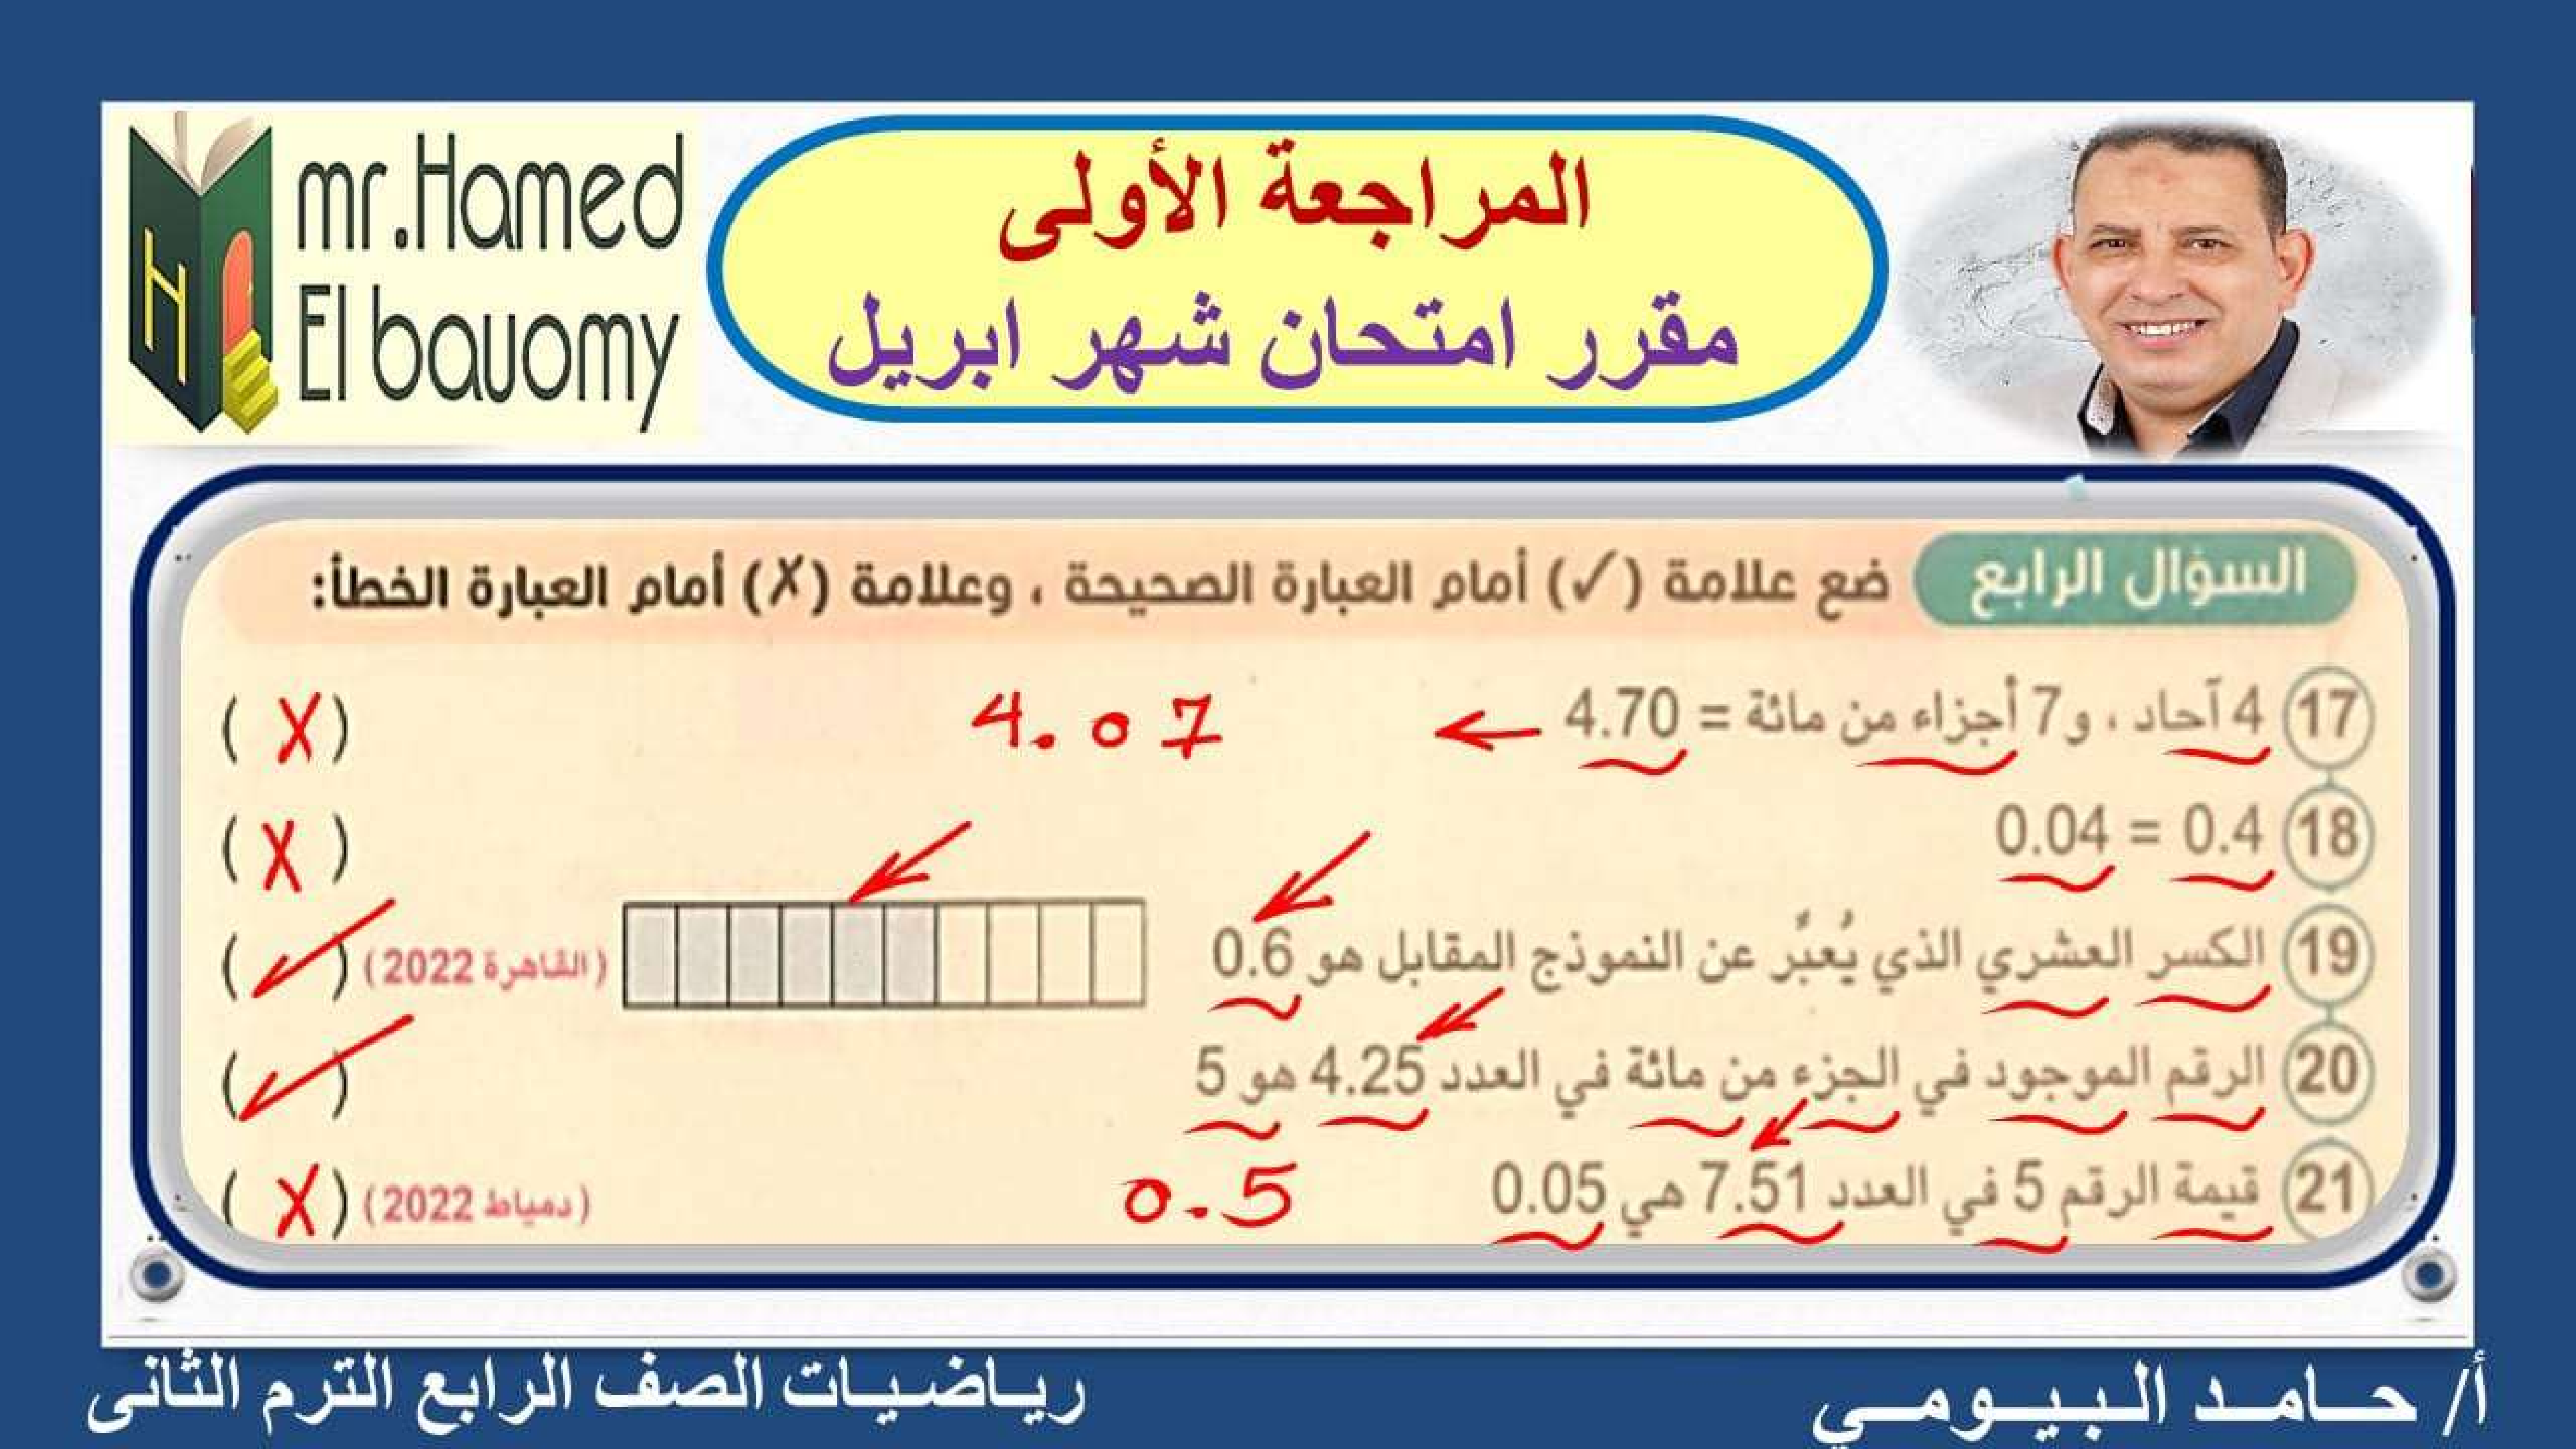 mr.Hamed
El bauomy
المراجعة الأولى
مقرر امتحان شهر ابريل
السؤال الرابع ضع علامة (✓) أمام العبارة الصحيحة ، وعلامة (X) أمام العبارة الخطأ:
17 4 آحاد ، و7 أجزاء من مائة = 4.70 ← 4.07 (X)
18 0.4 = 0.04 (X)
19 الكسر العشري الذي يُعبِّر عن النموذج المقابل هو 0.6 (القاهرة 2022) (✓)
20 الرقم الموجود في الجزء من مائة في العدد 4.25 هو 5 (✓)
21 قيمة الرقم 5 في العدد 7.51 هي 0.05 0.5 (دمياط 2022) (X)
أ/ حـامـد الـبـيـومـي
ريـاضـيـات الصف الرابع الترم الثانى